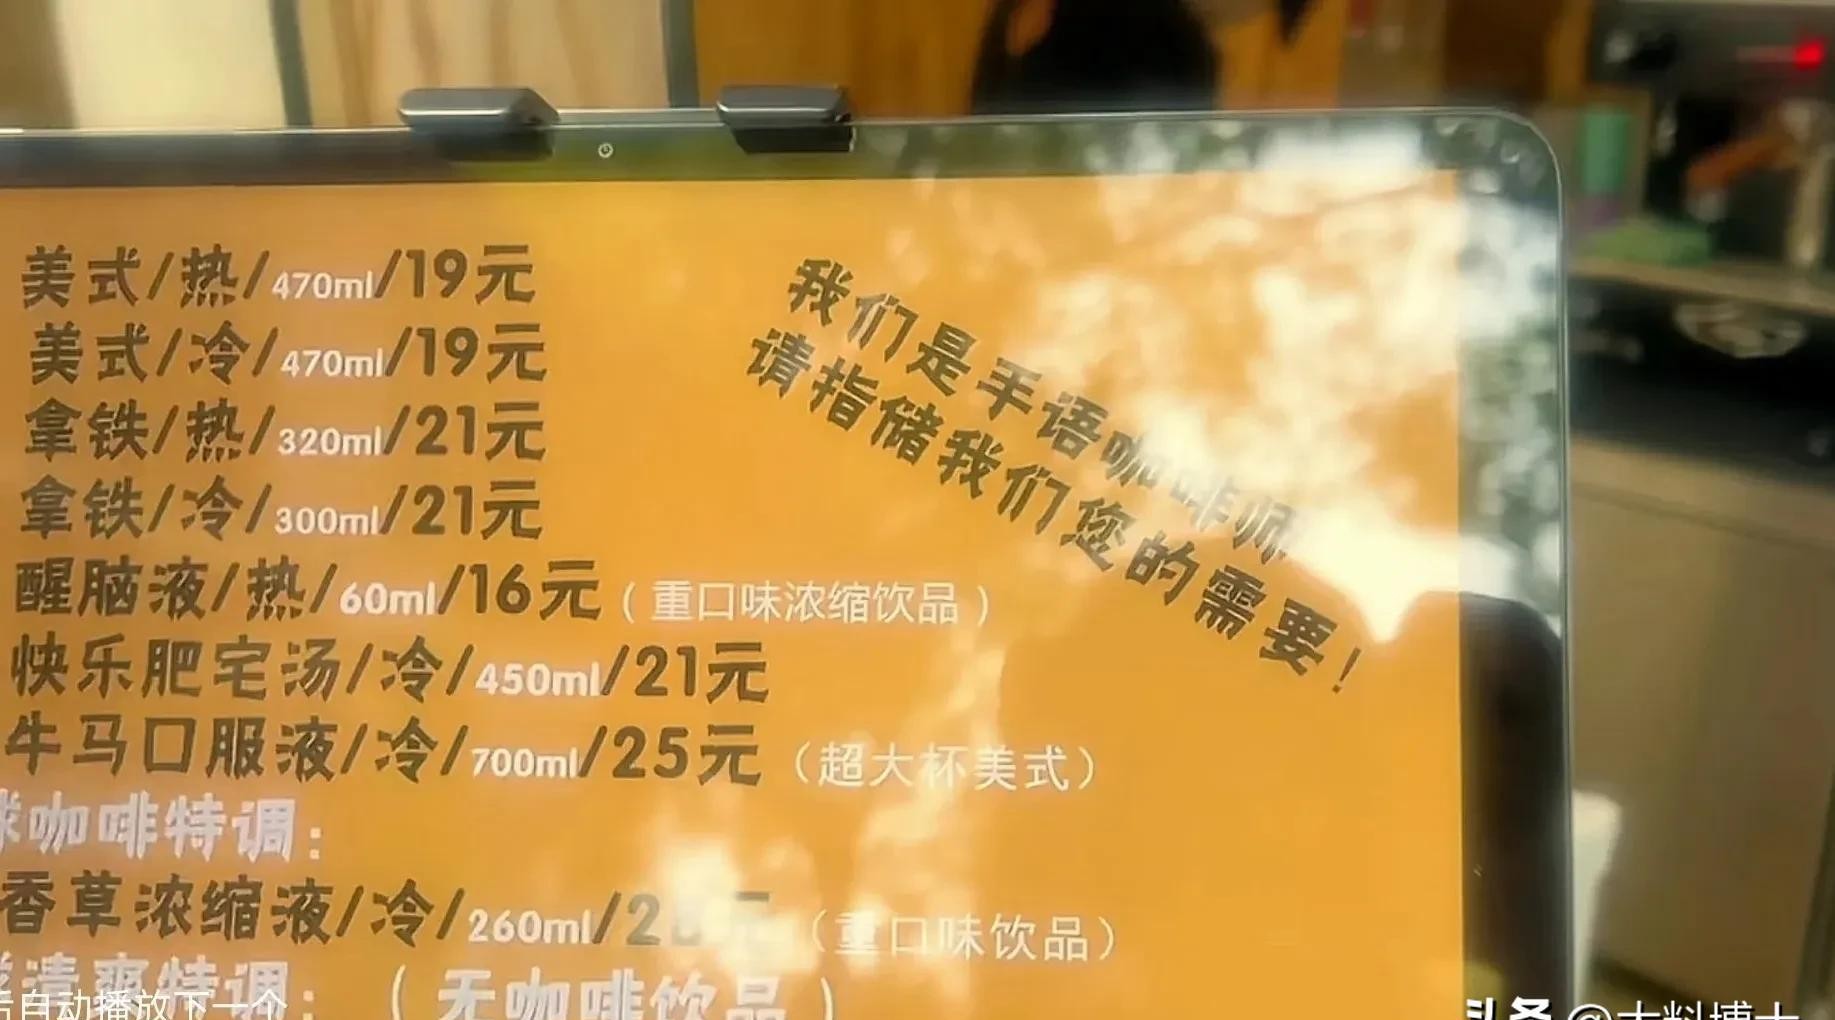 美式/热/470ml/19元
美式/冷/470ml/19元
拿铁/热/320ml/21元
拿铁/冷/300ml/21元
醒脑液/热/60ml/16元(重口味浓缩饮品)
快乐肥宅汤/冷/450ml/21元
牛马口服液/冷/700ml/25元(超大杯美式)
咖啡特调:
香草浓缩液/冷/260ml/2 元(重口味饮品)
清爽特调:(无咖啡饮品)
我们是手语咖啡师
请指储我们您的需要!
后自动播放下一个
头条 @大料博士